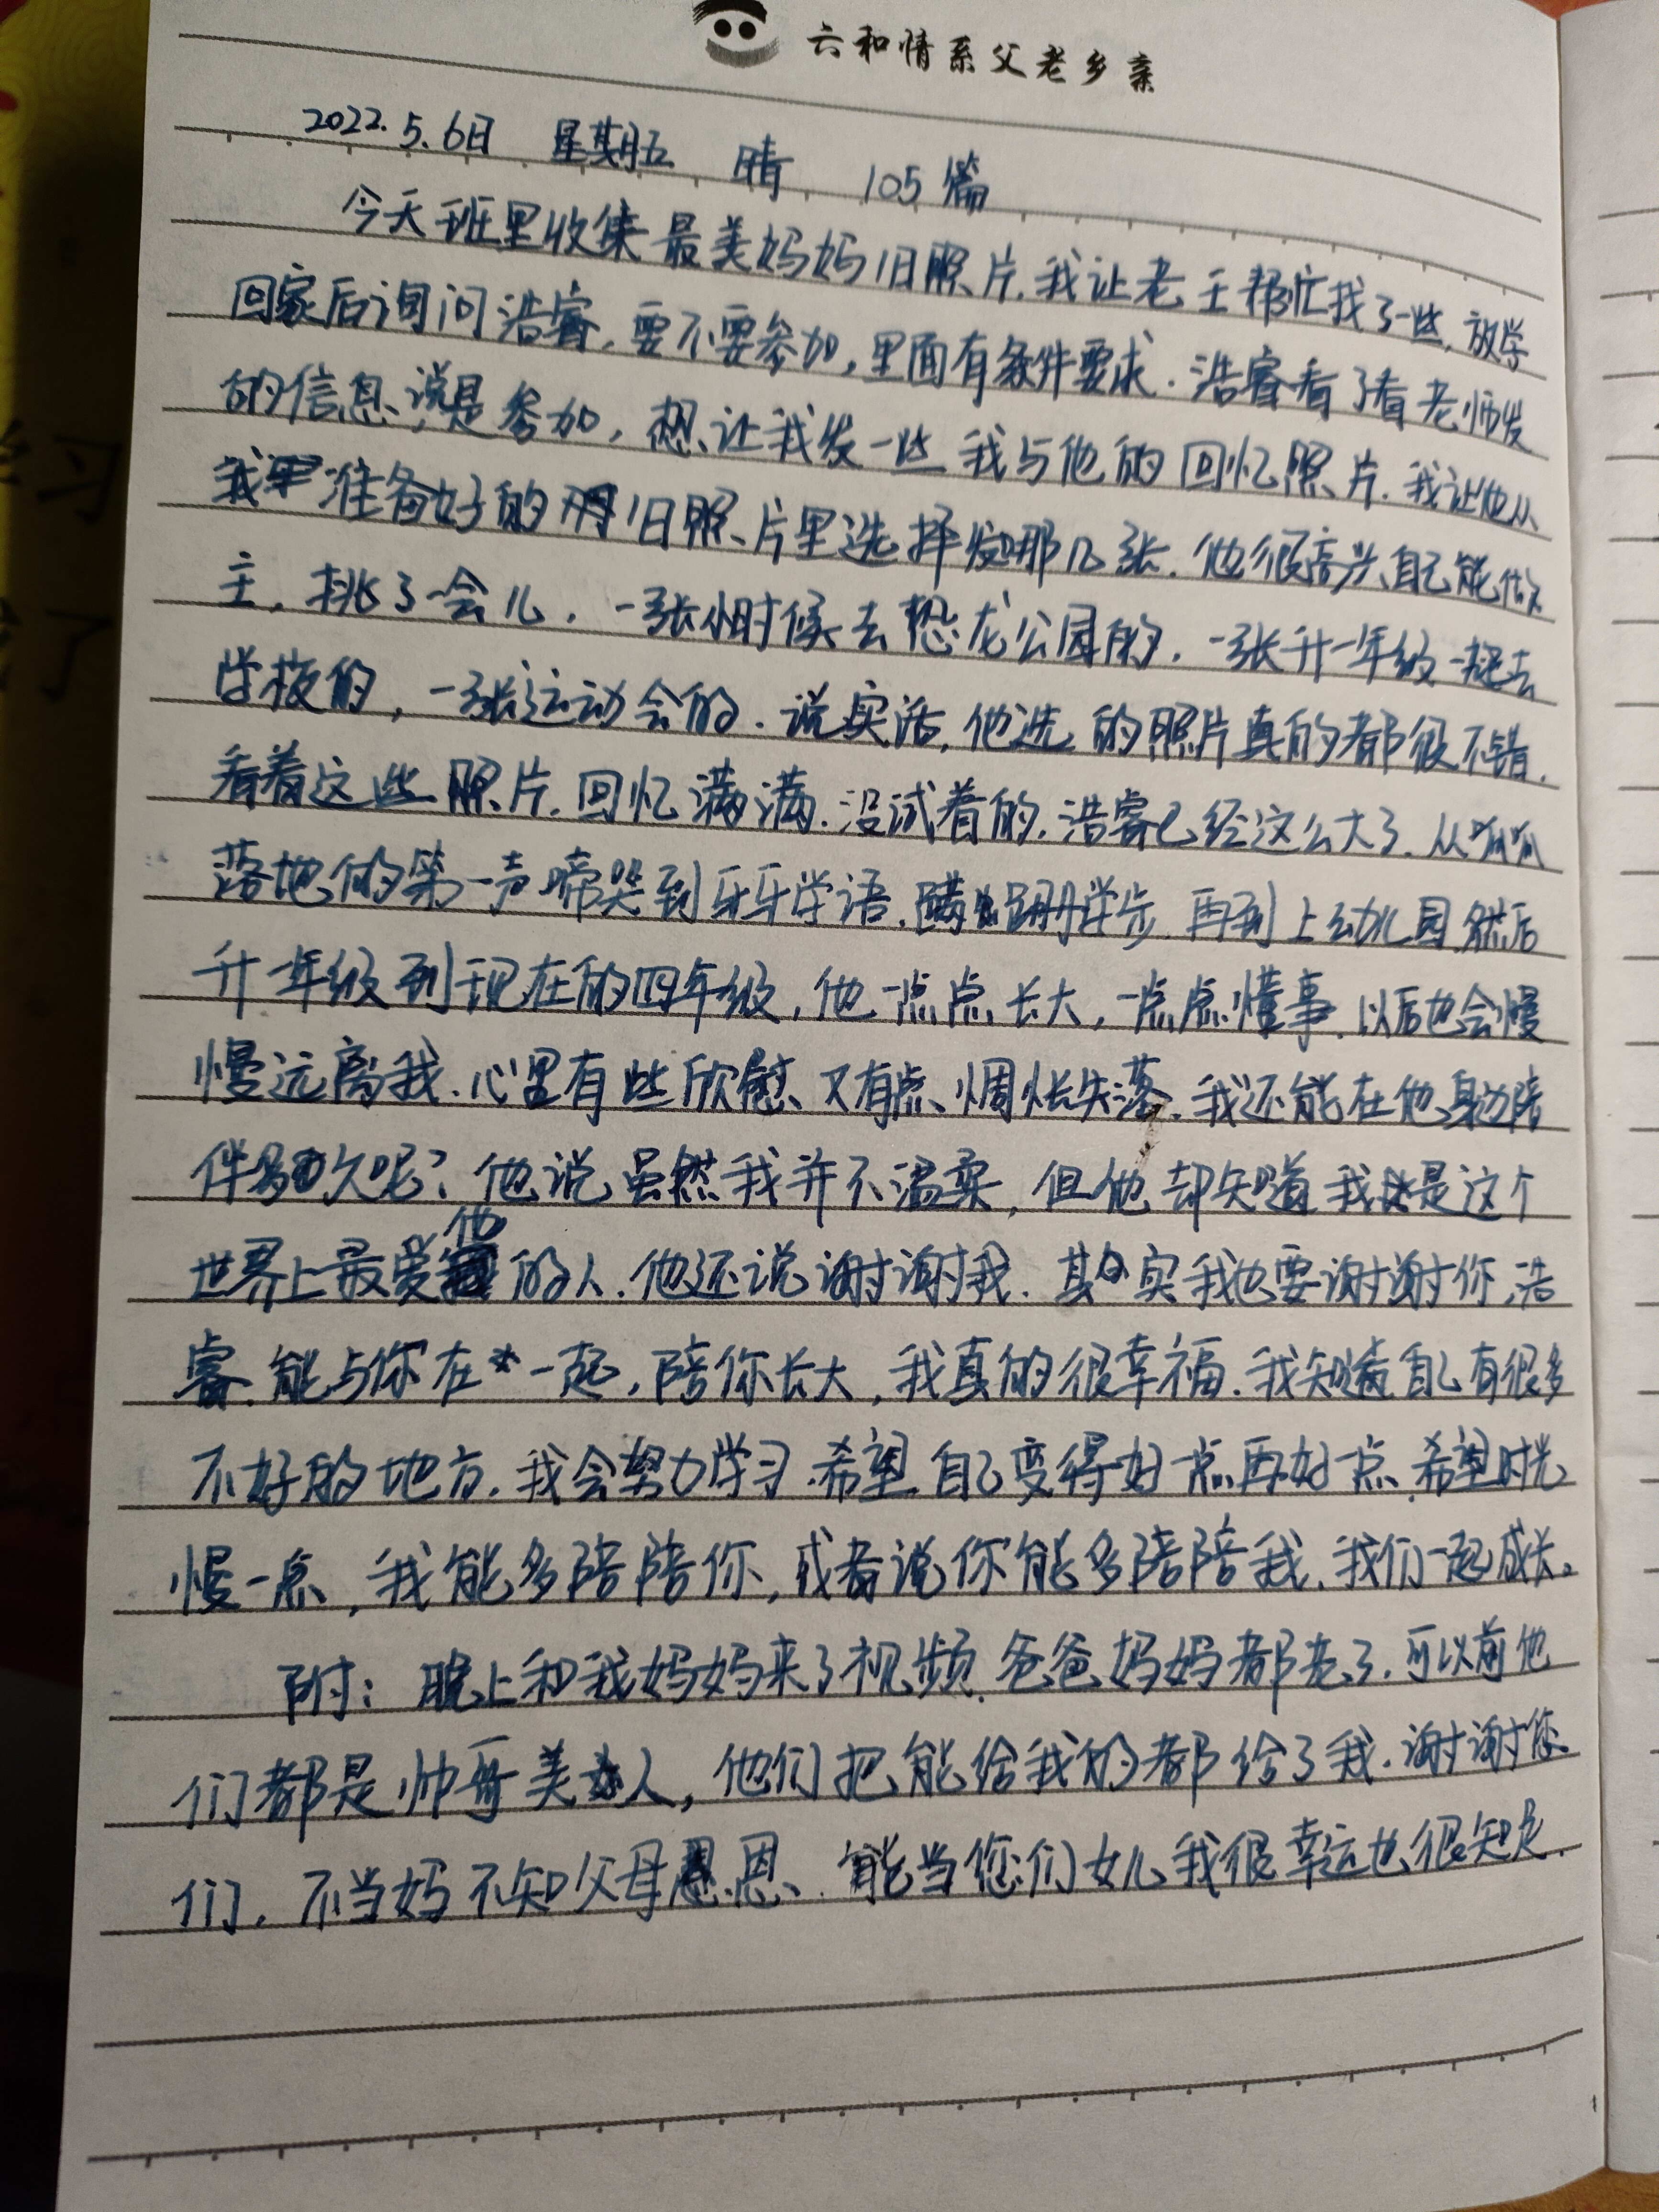 六和情系父老乡亲
2022.5.6日 星期五 晴 105篇
今天班里收集最美妈妈旧照片.我让老王帮忙找了一些,放学
回家后询问浩睿,要不要参加,里面有条件要求.浩睿看了看老师发
的信息,说是参加,想让我发一些我与他的回忆照片.我让他从
我准备好的旧照片里选择发哪几张.他很高兴自己能做
主,挑了一会儿,一张小时候去恐龙公园的,一张升一年级一起去
学校的,一张运动会的.说实话,他选的照片真的都很不错.
看着这些照片,回忆满满.没试着的,浩睿已经这么大了.从呱呱
落地的第一声啼哭到牙牙学语,蹒跚学步,再到上幼儿园,然后
升一年级到现在的四年级,他一点点长大,一点点懂事,以后也会慢
慢远离我.心里有些欣慰、又有点惆怅失落.我还能在他身边陪
伴多久呢?他说虽然我并不温柔,但他却知道我是这个
世界上最爱他的人.他还说谢谢我.其实我也要谢谢你,浩
睿.能与你在一起,陪你长大,我真的很幸福.我知道自己有很多
不好的地方.我会努力学习.希望自己变得好一点再好一点.希望时光
慢一点,我能多陪陪你,或者说你能多陪陪我.我们一起成长。
附:晚上和我妈妈来了视频.爸爸妈妈都老了.可以前他
们都是帅哥美人,他们把能给我的都给了我.谢谢您
们.不当妈不知父母恩、能当您们女儿我很幸运也很知足.